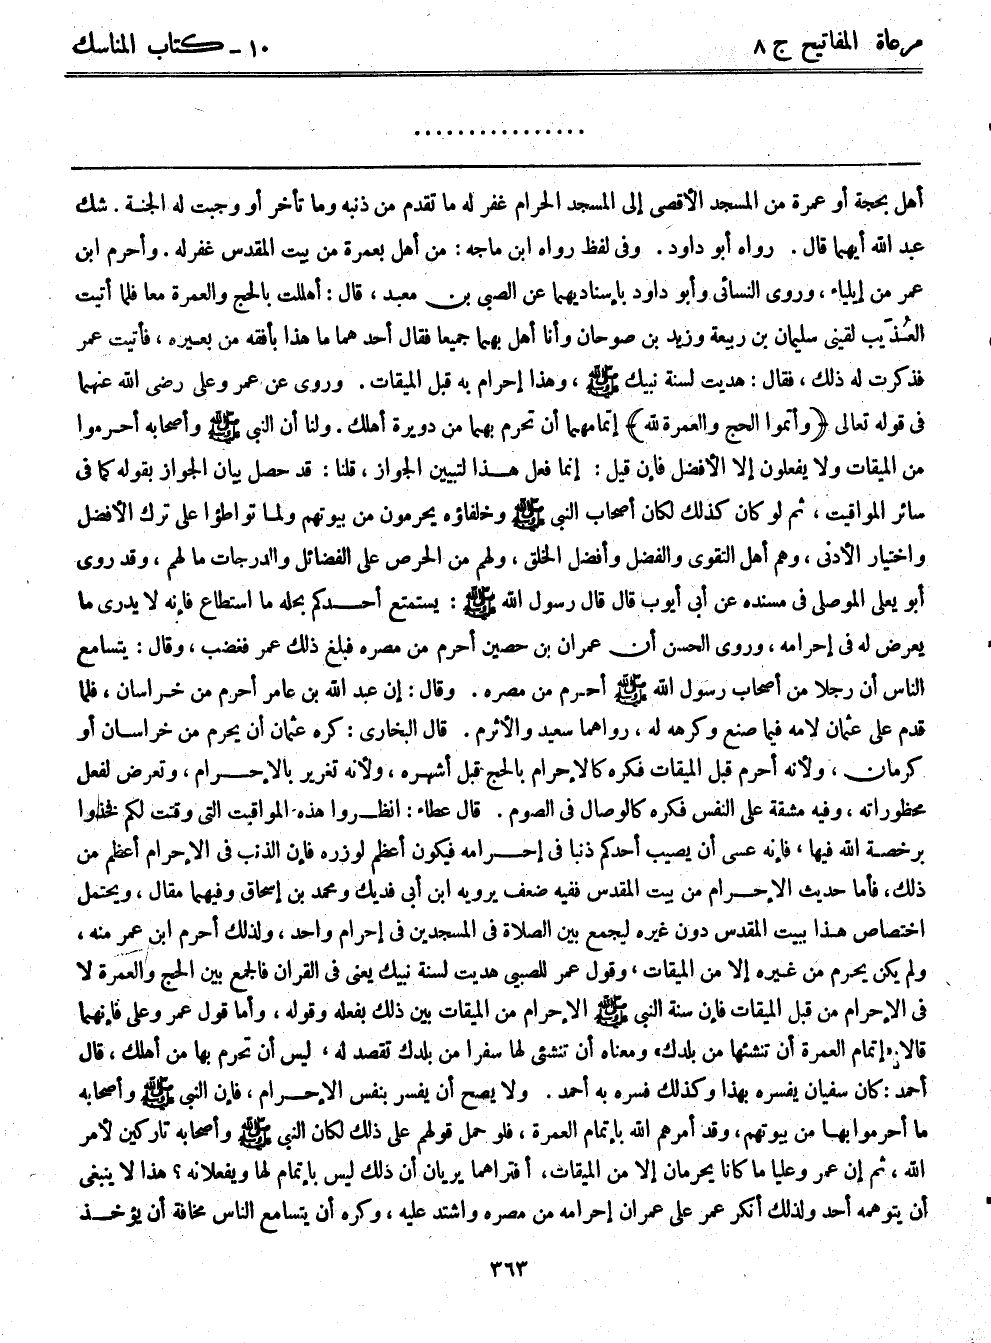 مرعاة المفاتيح ج ٨
١٠ - كتاب المناسك
................
أهل بحجة أو عمرة من المسجد الأقصى إلى المسجد الحرام غفر له ما تقدم من ذنبه وما تأخر أو وجبت له الجنة . شك
عبد الله أيهما قال . رواه أبو داود . وفى لفظ رواه ابن ماجه : من أهل بعمرة من بيت المقدس غفرله . وأحرم ابن
عمر من إيلياء ، وروى النسائى وأبو داود بإسناديهما عن الصبي بن معبد ، قال : أهللت بالحج والعمرة معا فلما أتيت
العُذَيب لقينى سليمان بن ربيعة وزيد بن صوحان وأنا أهل بهما جميعا فقال أحد هما ما هذا بأفقه من بعيره ، فأتيت عمر
فذكرت له ذلك ، فقال : هديت لسنة نبيك ﷺ ، وهذا إحرام به قبل الميقات . وروى عن عمر وعلى رضى الله عنهما
فى قوله تعالى ﴿وأتموا الحج والعمرة لله﴾ إتمامهما أن تحرم بهما من دويرة أهلك . ولنا أن النبي ﷺ وأصحابه أحرموا
من الميقات ولا يفعلون إلا الأفضل فإن قيل : إنما فعل هذا لتبيين الجواز ، قلنا : قد حصل بيان الجواز بقوله كما فى
سائر المواقيت ، ثم لو كان كذلك لكان أصحاب النبي ﷺ وخلفاؤه يحرمون من بيوتهم ولما تواطؤا على ترك الأفضل
واختيار الأدنى ، وهم أهل التقوى والفضل وأفضل الخلق ، ولهم من الحرص على الفضائل والدرجات ما لهم ، وقد روى
أبو يعلى الموصلى فى مسنده عن أبي أيوب قال قال رسول الله ﷺ : يستمتع أحدكم بحله ما استطاع فإنه لا يدرى ما
يعرض له فى إحرامه ، وروى الحسن أن عمران بن حصين أحرم من مصره فبلغ ذلك عمر فغضب ، وقال : يتسامع
الناس أن رجلا من أصحاب رسول الله ﷺ أحرم من مصره . وقال : إن عبد الله بن عامر أحرم من خراسان ، فلما
قدم على عثمان لامه فيما صنع وكرهه له ، رواهما سعيد والأثرم . قال البخارى : كره عثمان أن يحرم من خراسان أو
كرمان ، ولأنه أحرم قبل الميقات فكره كالإحرام بالحج قبل أشهره ، ولأنه تغرير بالإحرام ، وتعرض لفعل
محظوراته ، وفيه مشقة على النفس فكره كالوصال فى الصوم . قال عطاء : انظروا هذه المواقيت التى وقتت لكم فخذوا
برخصة الله فيها ، فإنه عسى أن يصيب أحدكم ذنبا فى إحرامه فيكون أعظم لوزره فإن الذنب فى الإحرام أعظم من
ذلك ، فأما حديث الإحرام من بيت المقدس ففيه ضعف يرويه ابن أبى فديك ومحمد بن إسحاق وفيهما مقال ، ويحتمل
اختصاص هذا ببيت المقدس دون غيره ليجمع بين الصلاة فى المسجدين فى إحرام واحد ، ولذلك أحرم ابن عمر منه ،
ولم يكن يحرم من غيره إلا من الميقات ، وقول عمر للصبي هديت لسنة نبيك يعنى فى القران فالجمع بين الحج والعمرة لا
فى الإحرام من قبل الميقات فإن سنة النبي ﷺ الإحرام من الميقات بين ذلك بفعله وقوله ، وأما قول عمر وعلى فإنهما
قالا « إتمام العمرة أن تنشئها من بلدك » ومعناه أن تنشئى لها سفرا من بلدك تقصد له ، ليس أن تحرم بها من أهلك ، قال
أحمد : كان سفيان يفسره بهذا وكذلك فسره به أحمد . ولا يصح أن يفسر بنفس الإحرام ، فإن النبي ﷺ وأصحابه
ما أحرموا بها من بيوتهم ، وقد أمرهم الله بإتمام العمرة ، فلو حمل قولهم على ذلك لكان النبي ﷺ وأصحابه تاركين لأمر
الله ، ثم إن عمر وعليا ما كانا يحرمان إلا من الميقات ، أفتراهما يريان أن ذلك ليس بإتمام لها ويفعلانه ؟ هذا لا ينبغى
أن يتوهمه أحد ولذلك أنكر عمر على عمران إحرامه من مصره واشتد عليه ، وكره أن يتسامع الناس مخافة أن يؤخذ
٣٦٣